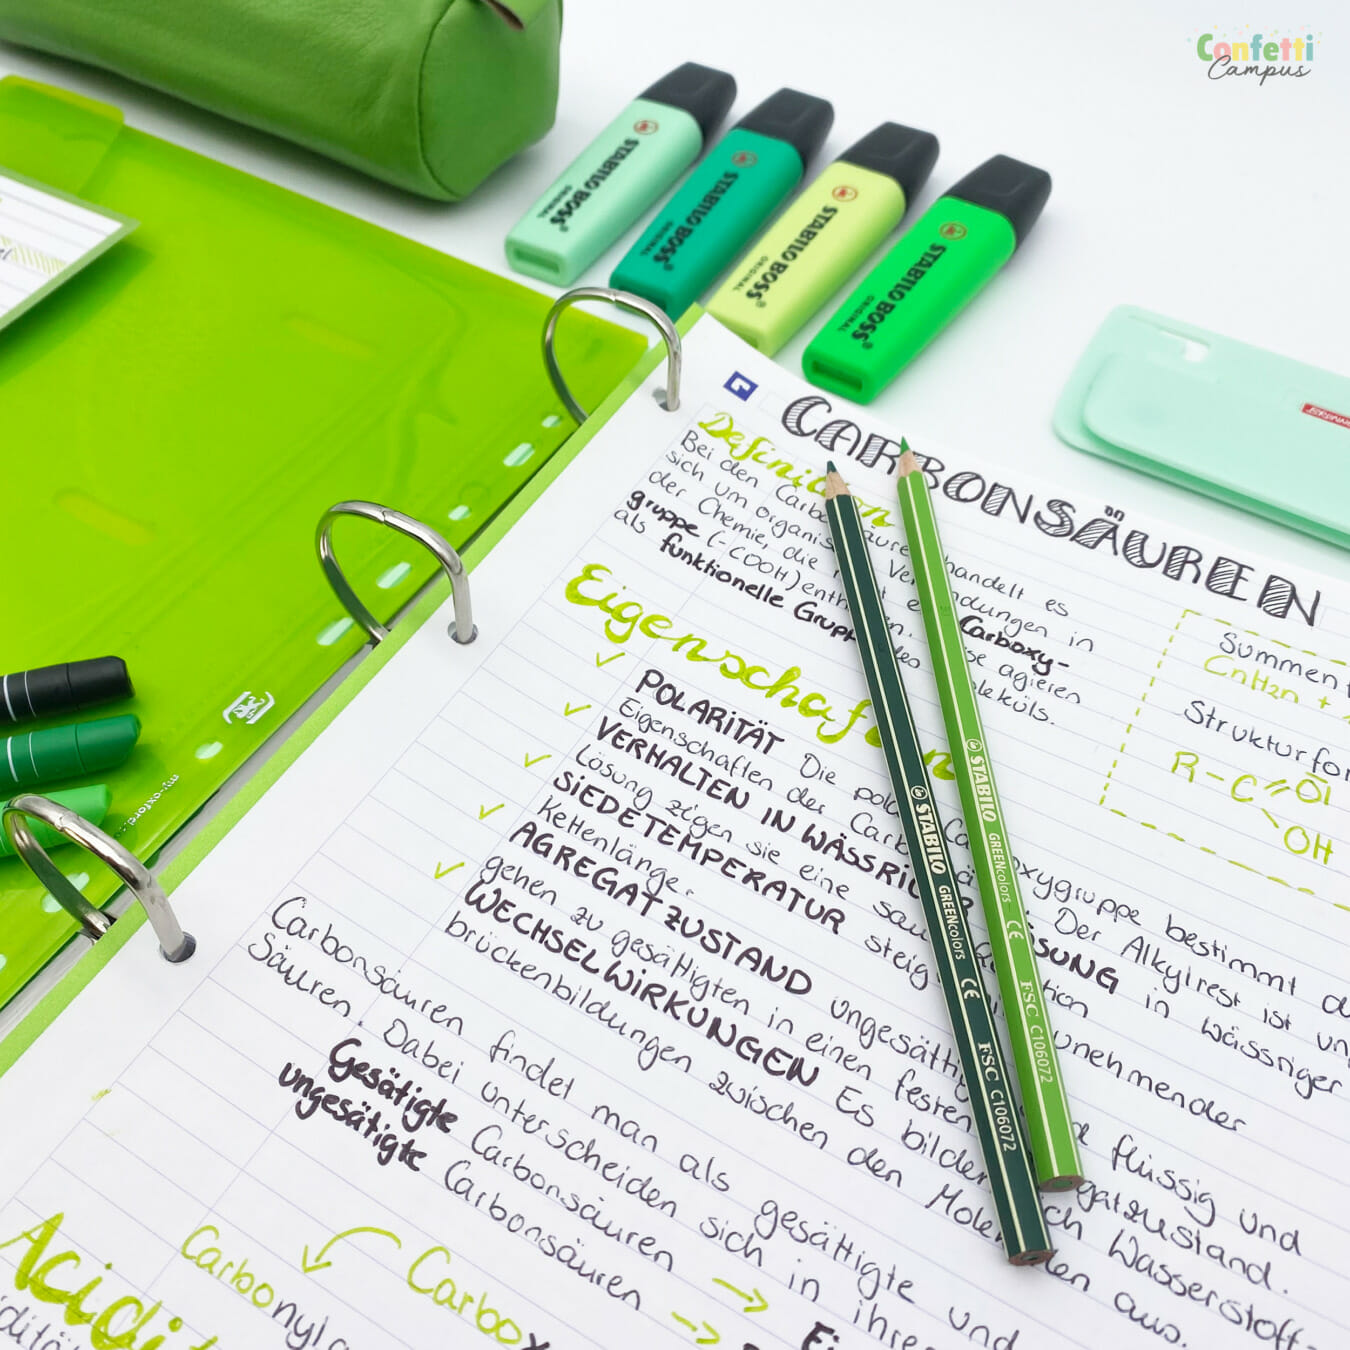 Confetti
Campus
STABILO BOSS
ORIGINAL
STABILO BOSS
ORIGINAL
STABILO BOSS
ORIGINAL
STABILO BOSS
ORIGINAL
CARBONSÄUREN
Definition
Bei den Carbonsäuren handelt es
sich um organische Verbindungen in
der Chemie, die Carboxy-
gruppe (-COOH) agieren
als funktionelle Gruppe des Moleküls.
Summen
CnH2n +
Strukturfor
R-C
OH
Eigenschaften
POLARITÄT Die Carboxygruppe bestimmt
Eigenschaften der Der Alkylrest ist
VERHALTEN IN WÄSSRIGER LÖSUNG in wässriger
Lösung zeigen sie eine
SIEDETEMPERATUR steigt zunehmender
Kettenlänge.
AGREGATZUSTAND ungesättig flüssig und
gehen zu gesättigten in einen festen
WECHSELWIRKUNGEN Es bilden sich Wasserstoff-
brückenbildungen zwischen den Molekülen aus.
Carbonsäuren findet man als gesättigte und
Säuren. Dabei unterscheiden sich in ihre
Gesätigte Carbonsäuren →
ungesätigte Carbonsäuren →
Carbonyl
Carbox
Acidi
STABILO GREENcolors CE FSC C106072
STABILO GREENcolors CE FSC C106072